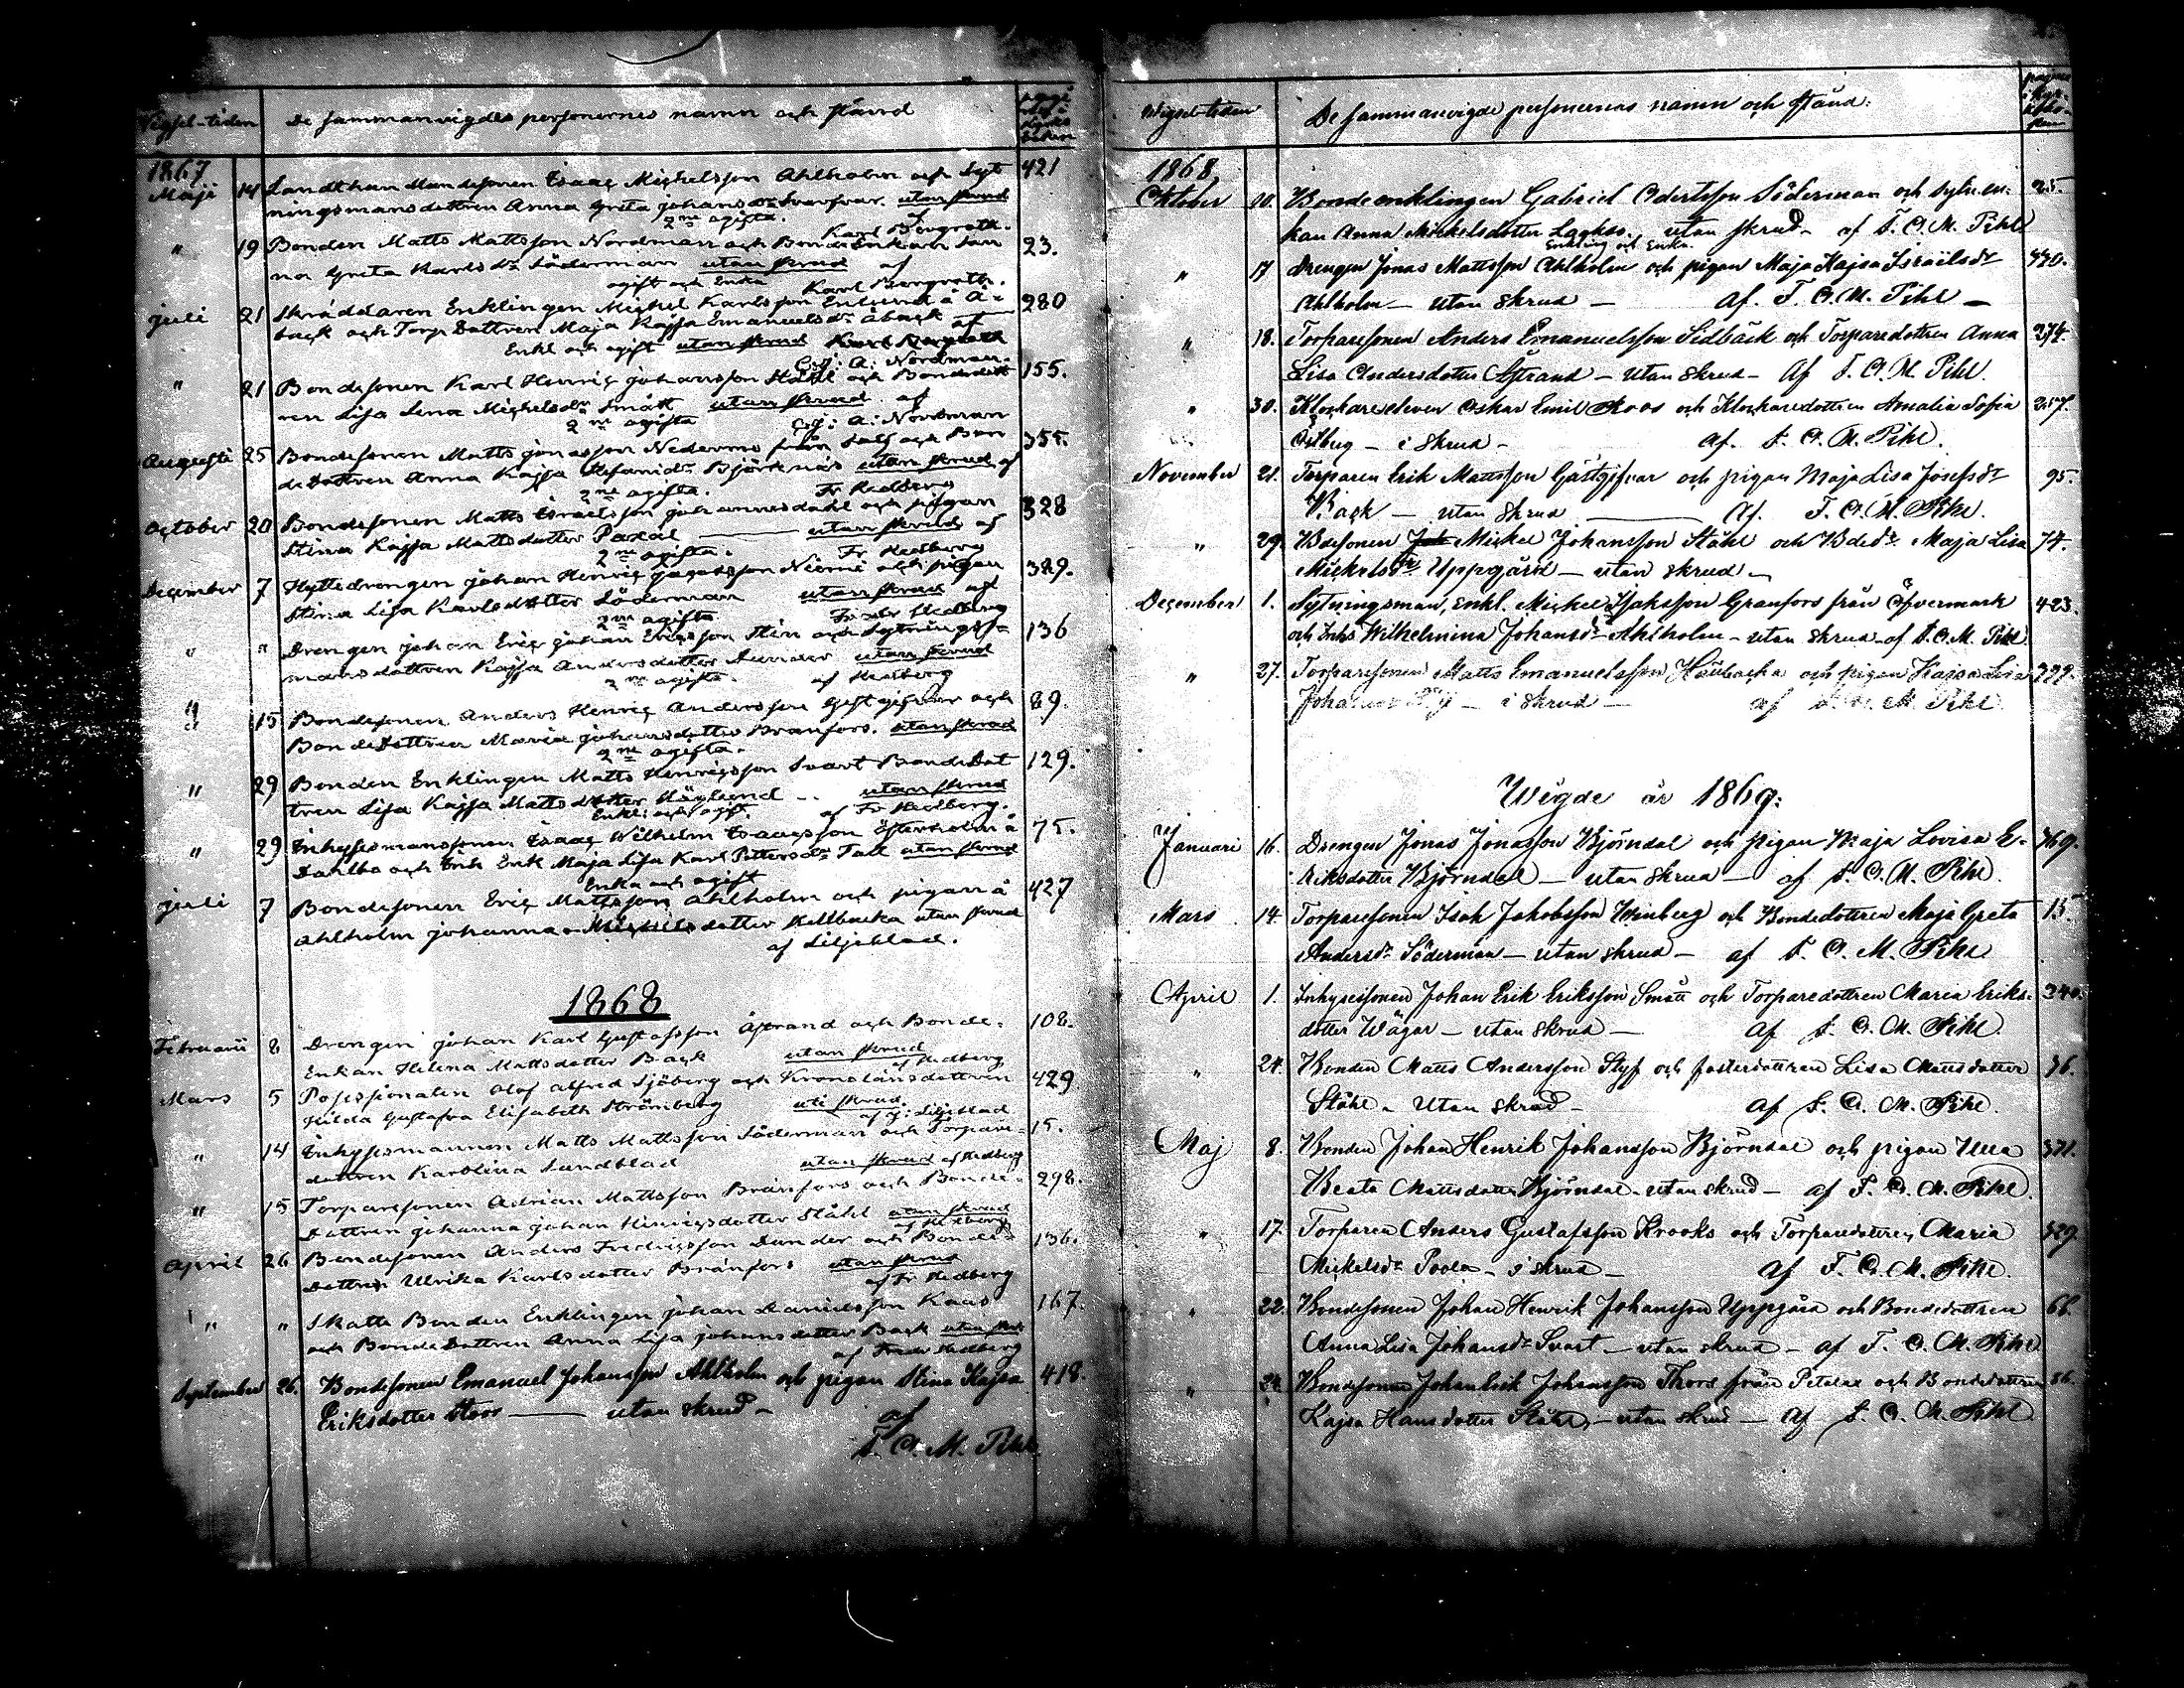 Vigsel-tiden De sammanvigdes personernes namn och stånd
1867
Maji 14 Landthandlandesonen Isaac Michelsson Ahlholm och Syt 421
ningsmansdottren Anna Greta Johansdr Svarfvar. utan skrud
2ne ogifta. Karl Bergroth.
" 19 Bonden Matts Mattsson Nordman och BondeEnkan San 23.
na Greta Karlsdr Söderman utan skrud af
ogift och Enka Karl Bergroth.
Juli 21 Skräddaren Enklingen Michel Karlsson Enlund å Å- 280
back och Torp Dottren Maja Kajsa Emanuelsdr Åback af
Enkl och ogift utan skrud Karl Bergroth
C: J: A: Nordman.
" 21 Bondesonen Karl Henric Johansson Ståhl och Bondedott 155.
ren Lisa Lena Michelsdr Smått utan skrud af
2ne ogifta C: J: A: Nordman
Augusti 25 Bondesonen Matts Jonasson Nederme från Solf och Bon 355.
deDottren Anna Kajsa Stefansdr Björknäs utan skrud af
2ne ogifta. Fr Hedberg
October 20 Bondesonen Matts Israelsson Johannesdahl och pigan 328
Stina Kajsa Mattsdotter Paxal utan skrud af
2ne ogifta. Fr Hedberg
December 7 Hyttedrengen Johan Henric Jacobsson Niemi och pigan 389.
Stina Lisa Karlsdotter Söderman utan skrud af
2ne ogifta Fredr Hedberg
" " Drengen Johan Eric Johan Ericsson Sten och Sytnings- 136
mansdottren Kajsa Andersdotter Dunder utan skrud
2ne ogifta. af Hedberg
" 15 Bondesonen Anders Henric Andersson Gestgifvar och 89.
BondeDottren Maria Johansdotter Bränfors. utan skrud
2ne ogifta.
" 29 Bonden Enklingen Matts Henricsson Svart BondeDot 129.
tren Lisa Kajsa Mattsdotter Häglund utan skrud
Enkl: och ogift. af Fr Hedberg.
" 29 Inhysesmansonen Isaac Wilhelm Isaacsson Österholm å 75.
Dahlbo och Inh Enk Maja Lisa Karl Pettersdr Tall utan skrud
Enka och ogift
Juli 7 Bondesonen Eric Mattsson Ahlholm och pigan å 427
Ahlholm Johanna Michelsdotter Kellbacka utan skrud
af Liljeblad.
1868
Februari 8 Drengen Johan Karl Gustafsson Åstrand och Bonde- 108.
Enkan Helena Mattsdotter Back utan skrud
af Hedberg
Mars 5 Possessionaten Olof Alfred Sjöberg och Kronolänsdottren 429
Hilda Gustafva Elisabeth Strömberg uti skrud.
af J: Liljeblad
" 14 Inhysesmannen Matts Mattsson Söderman och Torpare- 15.
dottren Karolina Sundblad utan skrud af Hedberg
" 15 Torparesonen Adrian Mattsson Bränfors och Bonde- 298.
Dottren Johanna Johan Henricsdotter Ståhl utan skrud
af Hedberg
April 26 Bondesonen Anders Fredricsson Dunder och Bonde- 136.
Dottren Ulrika Karlsdotter Bränfors utan skrud
af Fr Hedberg
" " Skatte Bonden Enklingen Johan Danielsson Kaas 167.
och BondeDottren Anna Lisa Johansdotter Back utan skrud
af Fredr Hedberg
September 26. Bondesonen Emanuel Johansson Ahlholm och pigan Stina Kajsa 418.
Eriksdotter Stoor — utan skrud — af
F. O. M. Pihl
Wigsel-tiden De sammanvigde personernas namn och stånd:
1868.
Oktober 10. Bondeenklingen Gabriel Edertsson Söderman och sytn.en- 25.
kan Anna Mickelsdotter Lackso. utan skrud — af F. O. M. Pihl
Enkling och Enka.
" 17 Drengen Jonas Mattsson Ahlholm och pigan Maja Kajsa Israelsdr 420.
Ahlholm — utan skrud — af. F. O. M. Pihl —
" 18. Torparesonen Anders Emanuelsson Sidbäck och Torparedottren Anna 274.
Lisa Andersdotter Åstrand — utan skrud — af F. O. M. Pihl.
" 30. Klockareeleven Oskar Emil Roos och Klockaredottren Amalia Sofia 257.
Östberg — i skrud — af. F. O. M. Pihl.
November 21. Torparen Erik Mattsson Gästgifvar och pigan Maja Lisa Josefsdr 95.
Back — utan skrud — af. F. O. M. Pihl.
" 29. Bdesonen Mickel Johansson Ståhl och Bdedr Maja Lisa 74.
Mickelsdr Uppgård — utan skrud —
December 1. Sytningsman, enkl. Mickel Isaksson Granfors från Öfvermark 423.
och Inhs Wilhelmina Johansdr Ahlholm — utan skrud — af F. O. M. Pihl.
" 27. Torparesonen Matts Emanuelsson Höubacka och pigan Kajsa Lisa
— i skrud — af F. O. M. Pihl.
Wigde år 1869:
Januari 16. Drengen Jonas Jonasson Björndal och pigan Maja Lovisa E- 369.
riksdotter Björndal — utan skrud — af F. O. M. Pihl.
Mars 14. Torparesonen Isak Jakobsson Winberg och Bondedottren Maja Greta 15.
Andersdr Söderman — utan skrud — af F. O. M. Pihl
April 1. Inhysessonen Johan Erik Eriksson Smått och Torparedottren Maria Eriks- 240.
dotter Wägar — utan skrud — af F. O. M. Pihl.
" 24. Bonden Matts Andersson Styf och fosterdottren Lisa Mattsdotter 36.
Ståhl — utan skrud — af F. O. M. Pihl.
Maj 8. Bonden Johan Henrik Johansson Björndal och pigan Ulla 371.
Beata Mattsdotter Björndal — utan skrud — af F. O. M. Pihl.
" 17. Torparen Anders Gustafsson Krooks och Torparedottren Maria 329.
Mickelsdr Poola — i skrud — af F. O. M. Pihl.
" 22. Bondesonen Johan Henrik Johansson Uppgård och Bondedottren 66.
Anna Lisa Johansdr Svart — utan skrud — af F. O. M. Pihl
" 24. Bondesonen Johan Erik Johansson Thors från Petalax och Bondedottren 86.
Kajsa Hansdotter Ståhl — utan skrud — af F. O. M. Pihl